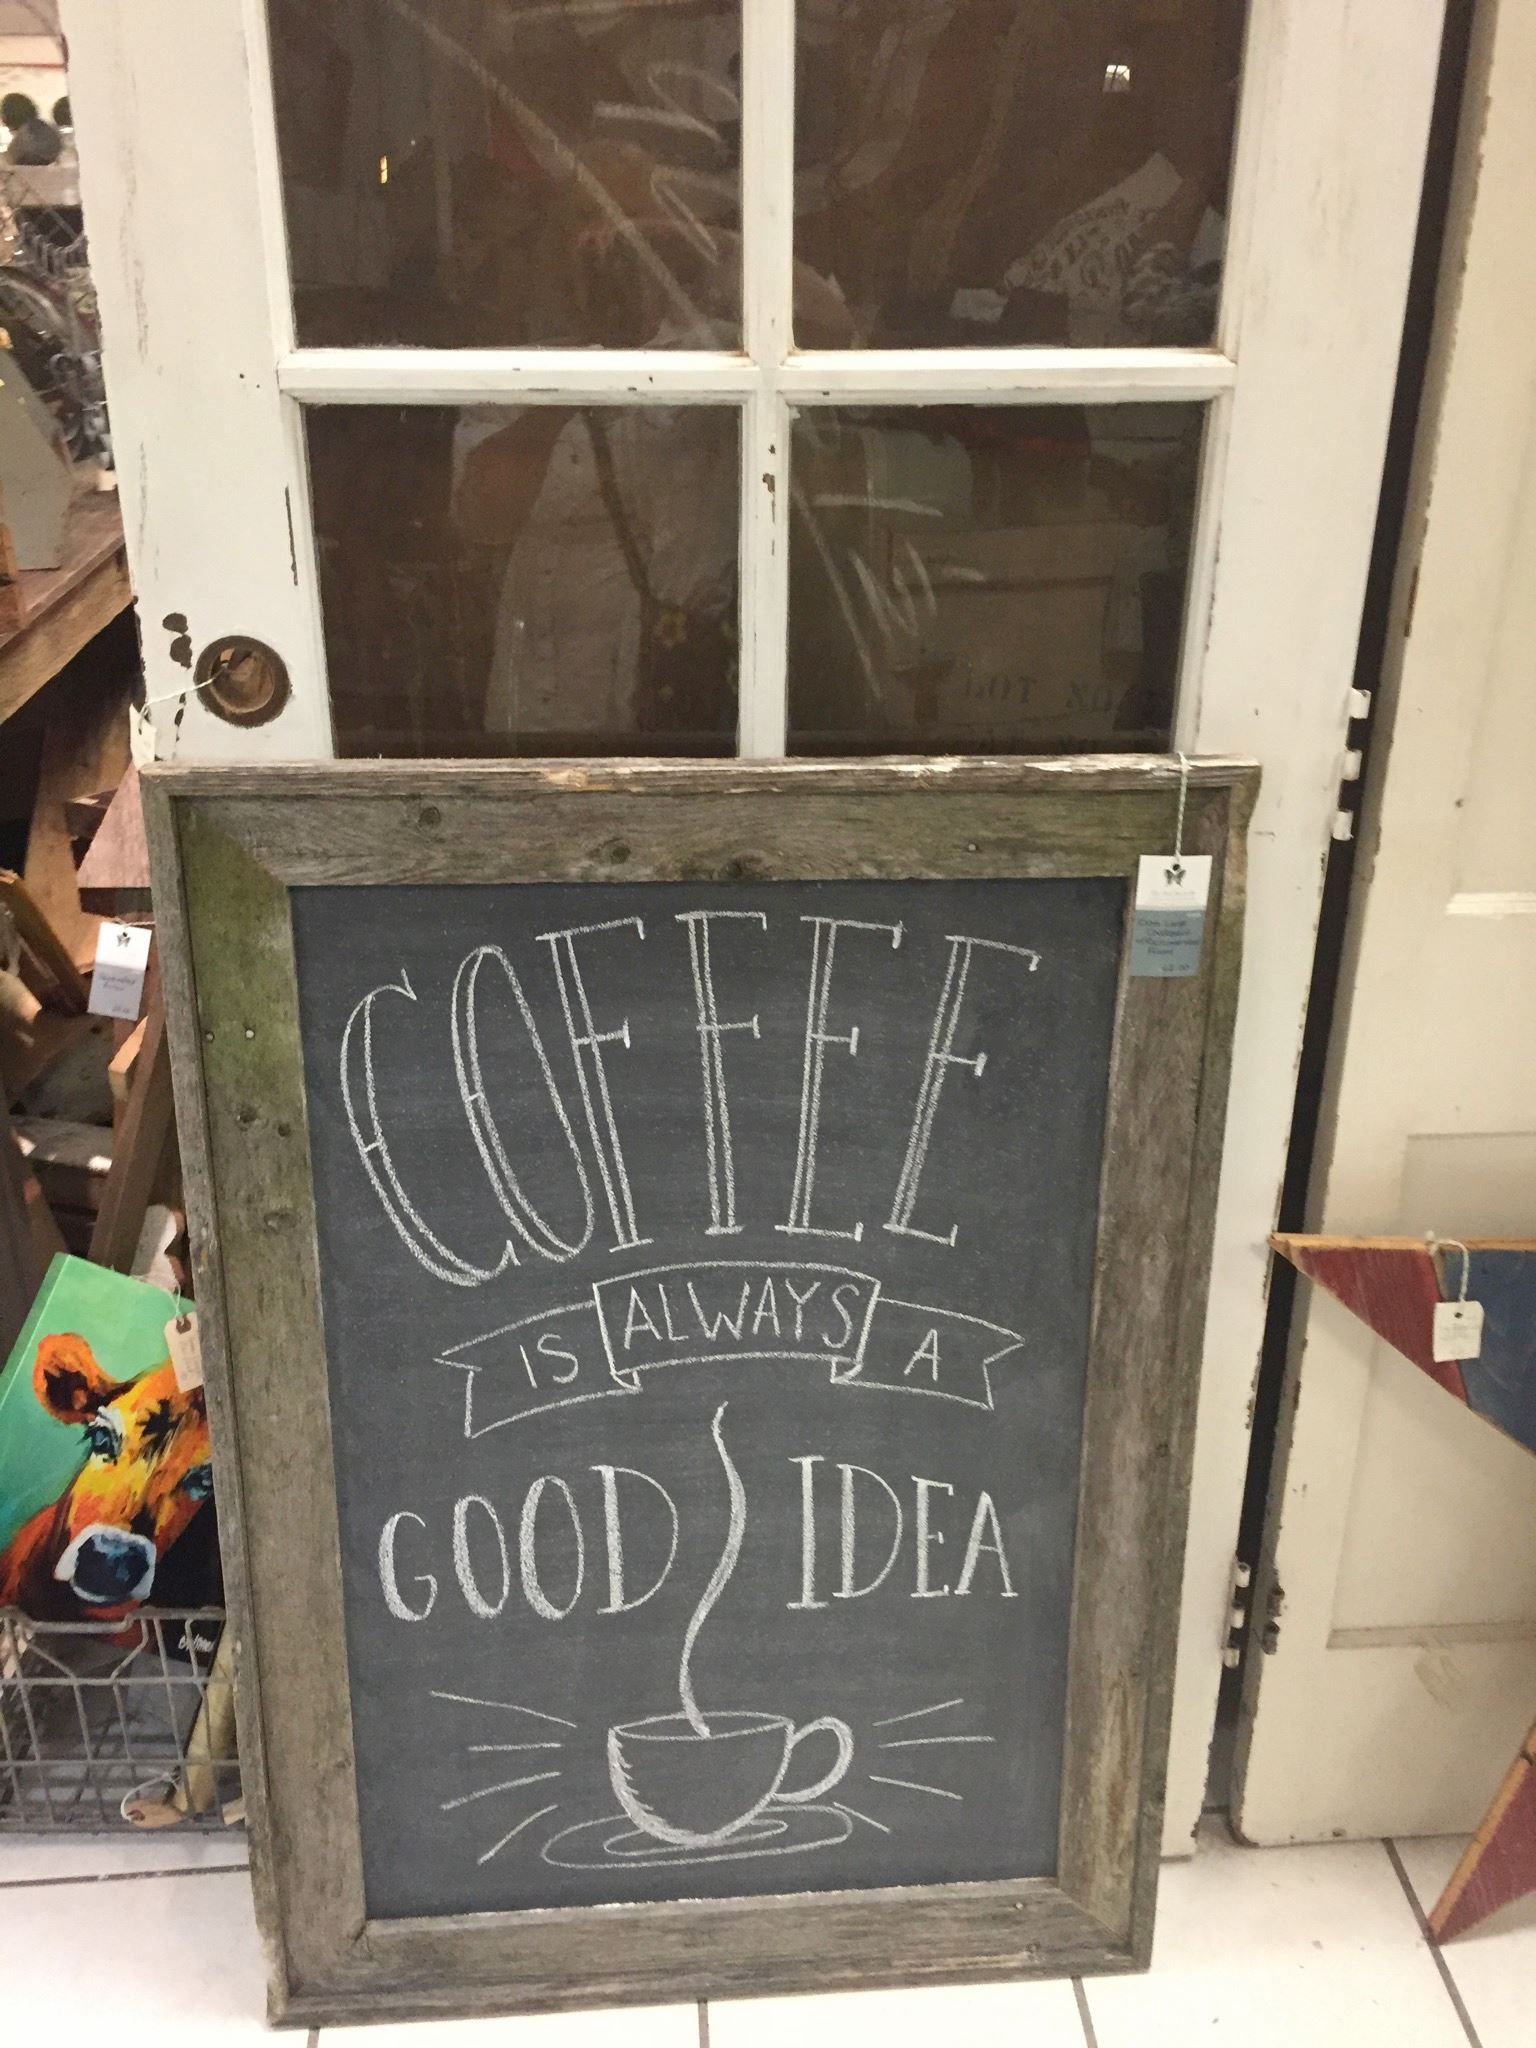 COFFEE
IS ALWAYS A
GOOD IDEA